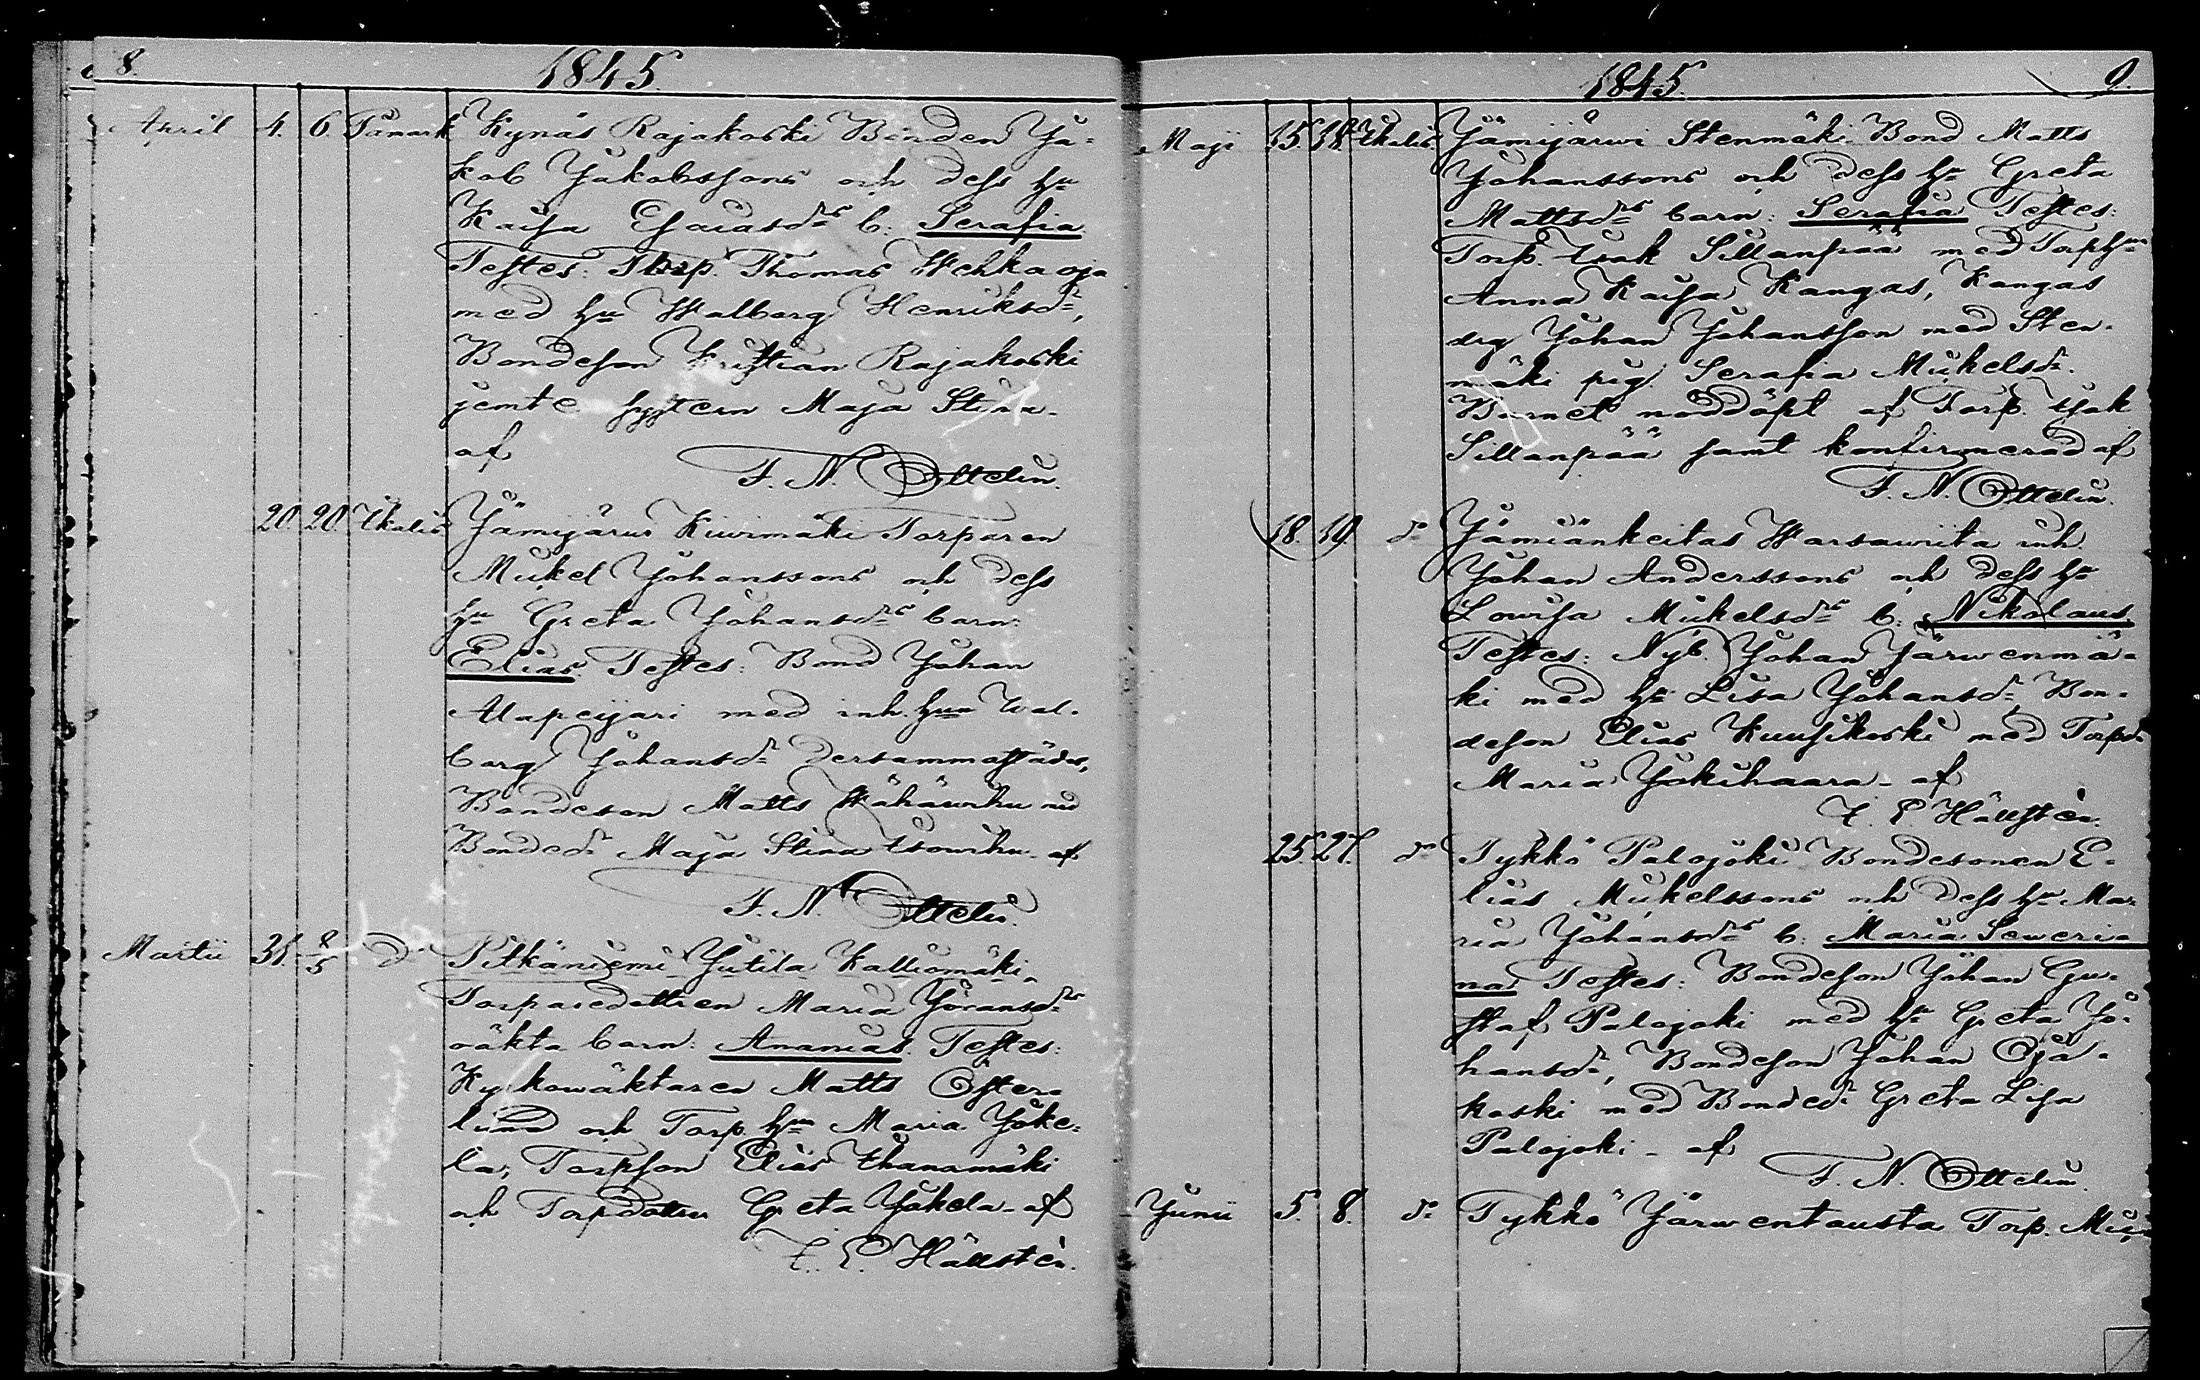 8.
1845.
April 4. 6. Tamark Kynäs Rajakoski Bonden Ja-
kob Jakobssons och dess hu
Kaisa Esaiasdrs b: Serafia
Testes: Torp. Thomas Wehkaoja
med hu Walborg Henriksdr,
Bondeson Kristian Rajakoski
jemte systern Maja Stina -
af
F. N. Ottelin.
20. 20. Ikalis Jämijärwi Kiwimäki Torparen
Mickel Johanssons och dess
hu Greta Johansdrs barn:
Elias. Testes: Bond Johan
Alapeijari med inh. hun Wal-
borg Johansdr dersammastädes,
Bondeson Matts Wähäwihu md
Bondedr Maja Stina Isowihu - af
F. N. Ottelin.
Martii 31. 8/5 do Pitkäniemi Jutila Kalliomäki
Torparedottren Maria Göransdrs
oäkta barn: Ananias. Testes:
Kyrkowäktaren Matts Öster-
lund och Torp. hun Maria Joke-
la, Torpson Elias Ihanamäki
och Torpdottren Greta Jokela - af
F. E. Hällstén.
1845.
9.
Maji 15. 18. Ikalis Jämijärwi Stenmäki Bond Matts
Johanssons och dess hu Greta
Mattsdrs barn: Serafia Testes:
Torp. Isak Sillanpää med Torphun
Anna Kaisa Kangas, Kangas
drg Johan Johansson med Sten-
mäki pig. Serafia Mickelsdr.
Barnet nöddöpt af Torp. Isak
Sillanpää samt konfirmerad af
F. N. Ottelin.
18. 19. do Jämiänkeitas Warsawiita inh.
Johan Anderssons och dess hu
Lowisa Mickelsdrs b: Nikolaus.
Testes: Nyb. Johan Järwenmä-
ki med hu Lisa Johansdr, Bon-
deson Elias Kuusikoski med Torpdr
Maria Jokihaara - af
F. E. Hällstén.
25. 27. do Tykkö Palojoki Bondesonen E-
lias Mickelssons och dess hu Ma-
ria Johansdrs b: MariaSeweri-
na Testes: Bondeson Johan Gu-
staf Palojoki med hu Greta Jo-
hansdr, Bondeson Johan Oja-
koski med Bondedr Greta Lisa
Palojoki - af
F. N. Ottelin.
Junii 5. 8. do Tykkö Järwentausta Torp. Mic-